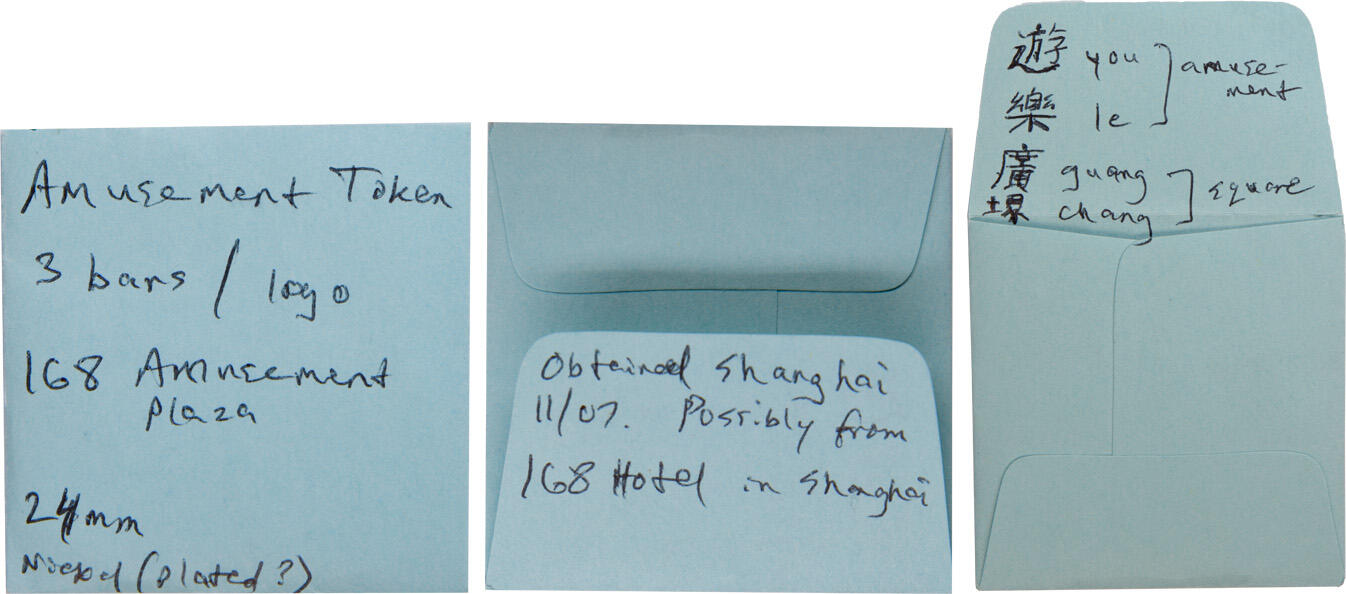 Amusement Token
3 bars / logo
168 Amusement
Plaza
24mm
Nickel (plated?)
Obtained Shanghai
11/07. Possibly from
168 Hotel in Shanghai
遊 you
樂 le
amuse-
ment
廣 guang
場 chang
square